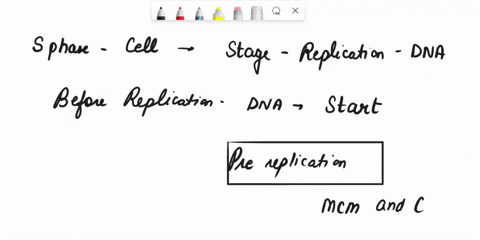 S phase - Cell → Stage - Replication - DNA
Before Replication - DNA → Start
Pre replication
mcm and C